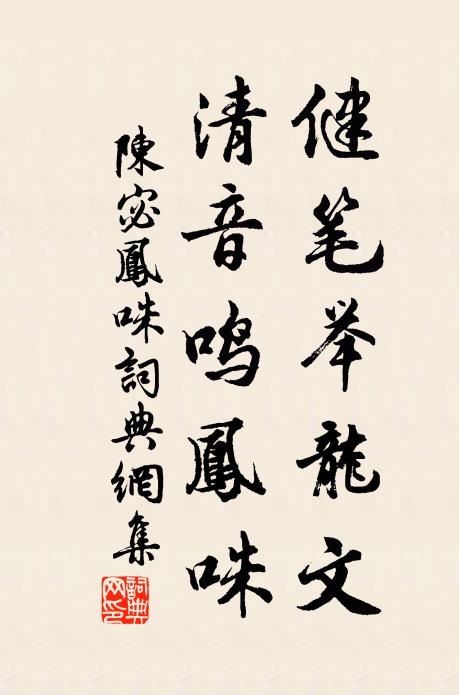 健笔举龍文
清音鸣鳳咮
陳宓鳳咮詞典網集
詞典网印